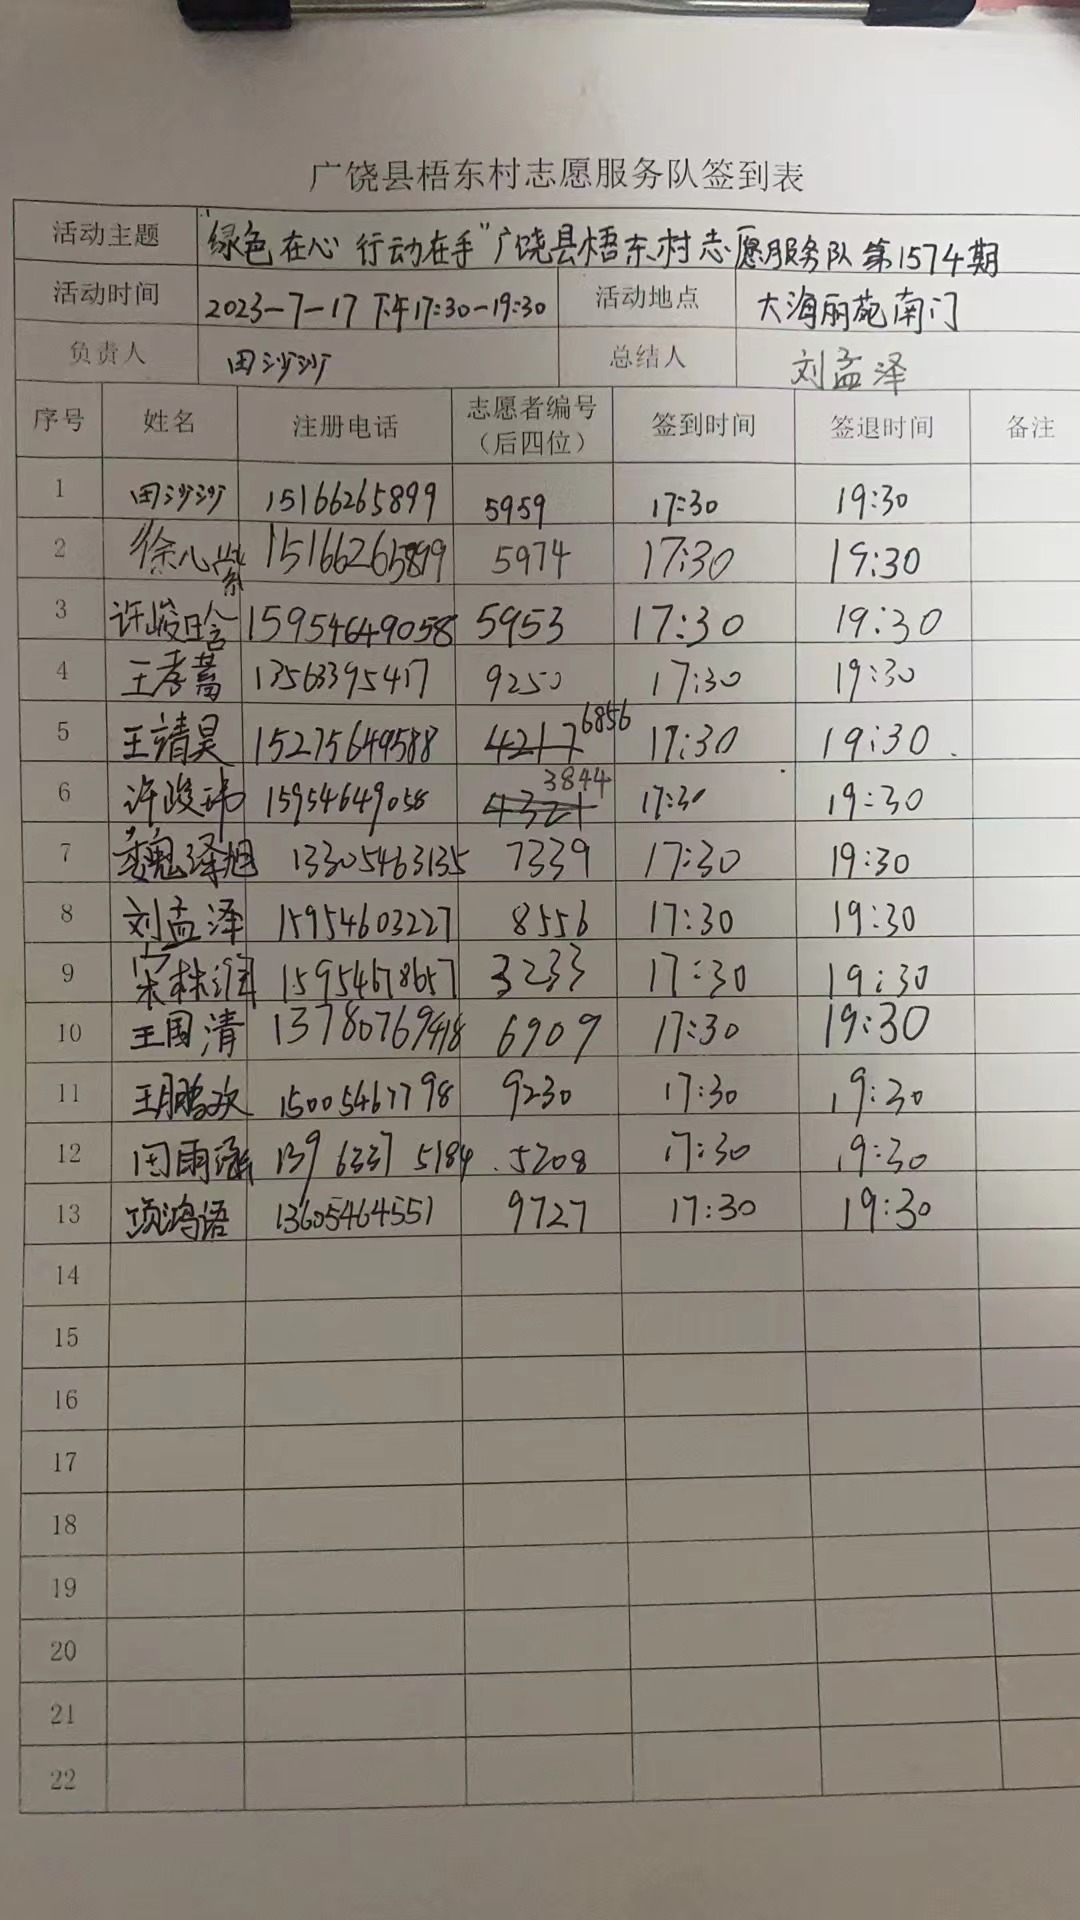 广饶县梧东村志愿服务队签到表
活动主题 "绿色在心 行动在手"广饶县梧东村志愿服务队第1574期
活动时间 2023-7-17 下午17:30-19:30 活动地点 大海丽苑南门
负责人 田沙沙 总结人 刘孟泽
序号 姓名 注册电话 志愿者编号（后四位） 签到时间 签退时间 备注
1 田沙沙 15166265899 5959 17:30 19:30
2 徐心紫 15166265899 5974 17:30 19:30
3 许峻晗 15954649058 5953 17:30 19:30
4 王孝蒿 13563395417 9250 17:30 19:30
5 王靖昊 15275649588 4217 6856 17:30 19:30
6 许峻玮 15954649058 4321 3844 17:30 19:30
7 魏泽旭 13305463135 7339 17:30 19:30
8 刘孟泽 15954603227 8556 17:30 19:30
9 宋林润 15954678657 3233 17:30 19:30
10 王国清 13780769418 6909 17:30 19:30
11 王鹏欢 15005467798 9230 17:30 19:30
12 周雨涵 13963375184 5208 17:30 19:30
13 项鸿语 13605464551 9727 17:30 19:30
14
15
16
17
18
19
20
21
22